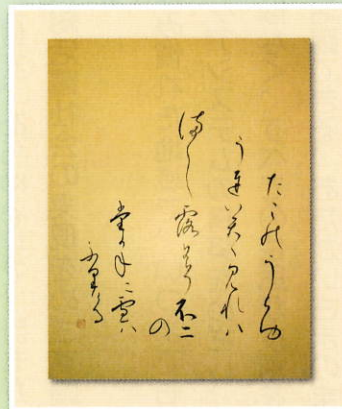 たこのうらゆ
うちいてゝ見れハ
ましろにそ不二
の
たかねニ雪ハ
ふりける